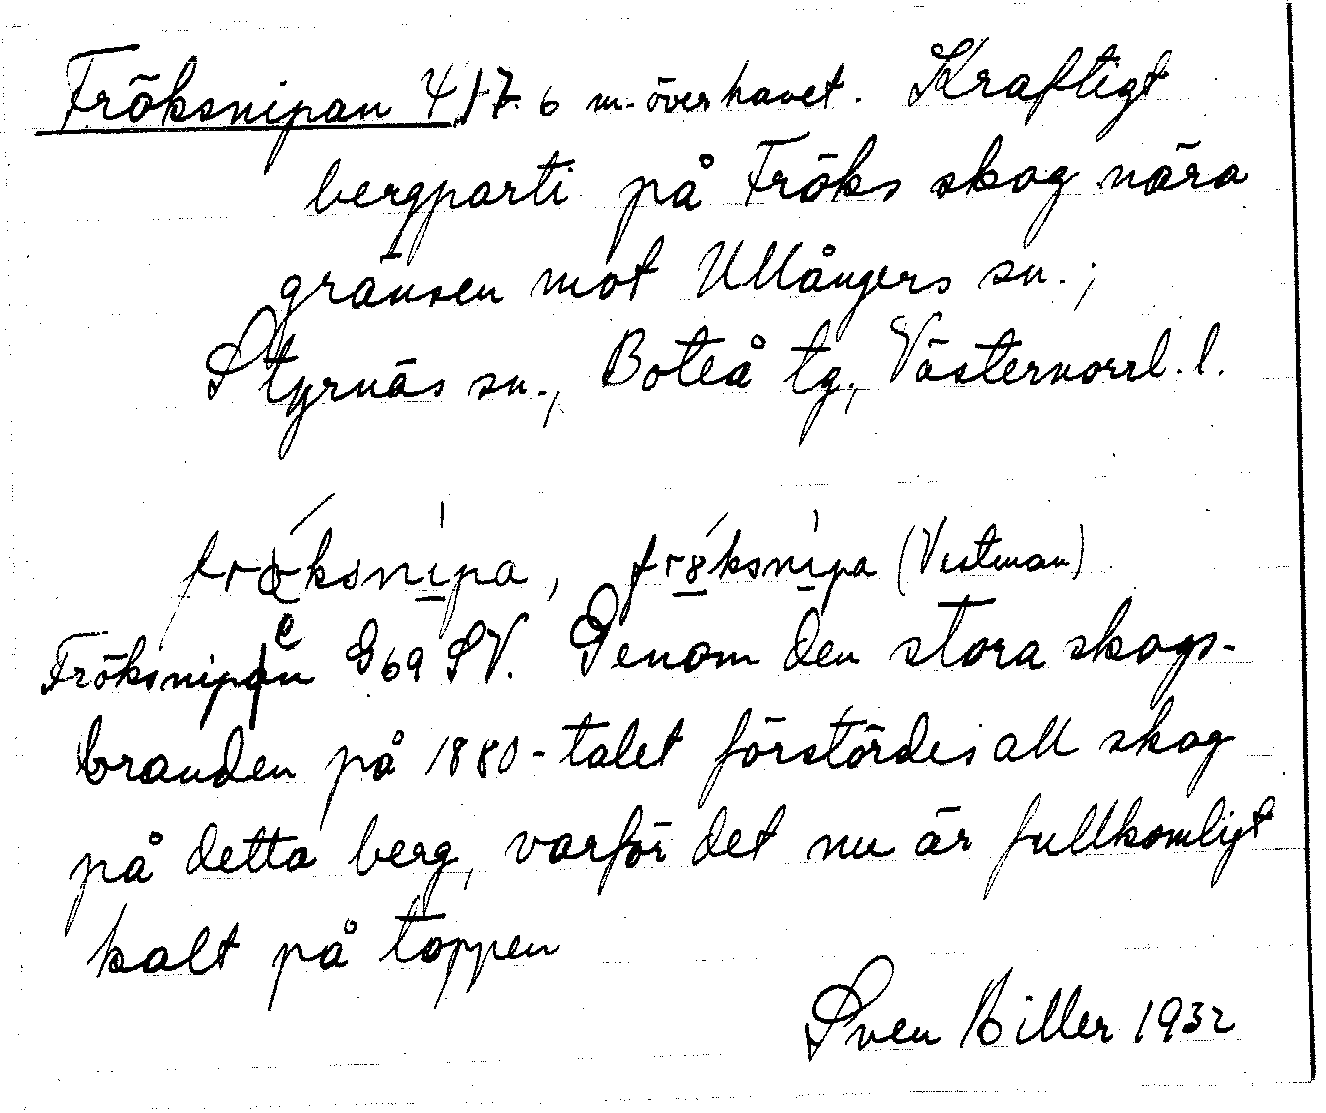 Fröksnipan 417.6 m. över havet. Kraftigt
bergparti på Fröks skog nära
gränsen mot Ullångers sn.;
Styrnäs sn., Boteå tg., Västernorrl. l.
fröksnipa, fr8ksnipa (Vestman)
Fröksnipen G69 SV. Genom den stora skogs-
branden på 1880-talet förstördes all skog
på detta berg, varför det nu är fullkomligt
kalt på toppen
Sven Biller 1932